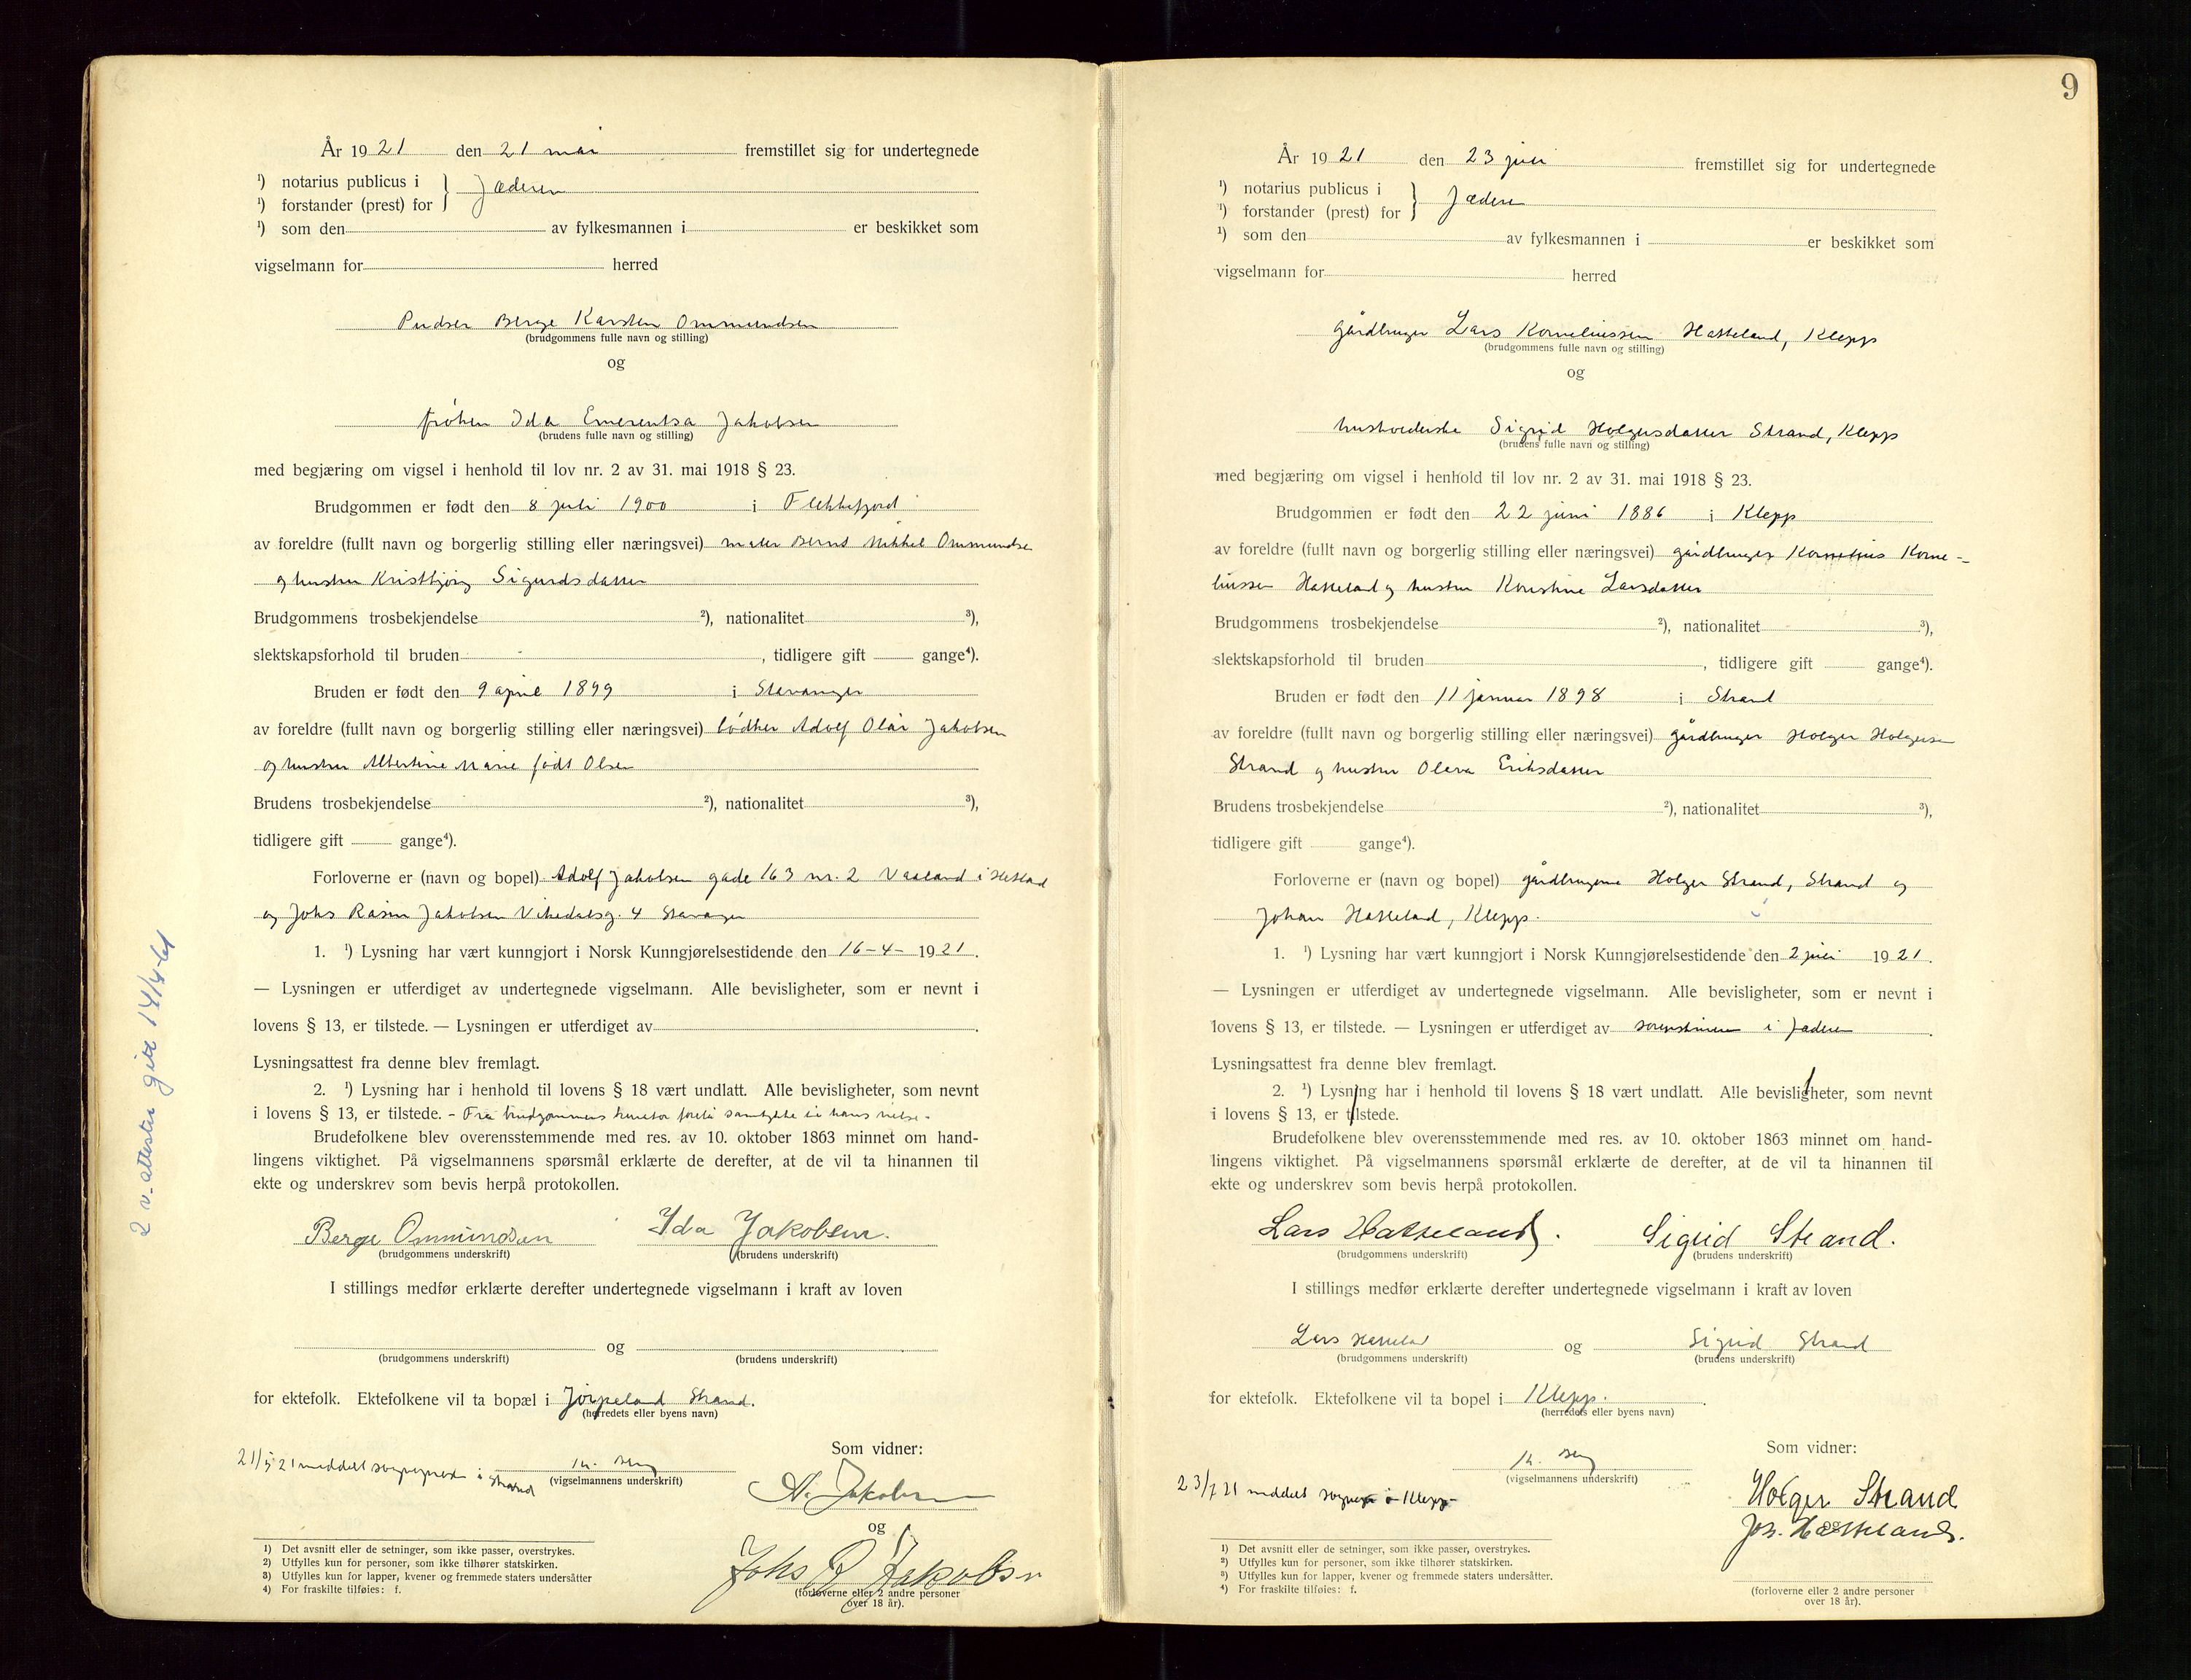 År 1921 den 21 mai fremstillet sig for undertegnede
¹) notarius publicus i
¹) forstander (prest) for } Jæderen
¹) som den av fylkesmannen i er beskikket som
vigselmann for herred
Pudser Berge Karsten Ommundsen
(brudgommens fulle navn og stilling)
og
frøken Ida Emerentsa Jakobsen
(brudens fulle navn og stilling)
med begjæring om vigsel i henhold til lov nr. 2 av 31. mai 1918 § 23.
Brudgommen er født den 8 juli 1900 i Flekkefjord
av foreldre (fullt navn og borgerlig stilling eller næringsvei) maler Bernt Mikkel Ommundsen
og hustru Kristbjørg Sigurdsdatter
Brudgommens trosbekjendelse ²), nationalitet ³),
slektskapsforhold til bruden , tidligere gift gange⁴).
Bruden er født den 9 april 1899 i Stavanger
av foreldre (fullt navn og borgerlig stilling eller næringsvei) bødker Adolf Olai Jakobsen
og hustru Albertine Marie født Olsen
Brudens trosbekjendelse ²), nationalitet ³),
tidligere gift gange⁴).
Forloverne er (navn og bopel) Adolf Jakobsen gade 163 nr. 2 Vaaland i Hetland
og Johs Rasm Jakobsen Vikedalsg. 4 Stavanger
1. ¹) Lysning har vært kunngjort i Norsk Kunngjørelsestidende den 16-4- 1921.
— Lysningen er utferdiget av undertegnede vigselmann. Alle bevisligheter, som er nevnt i
lovens § 13, er tilstede. — Lysningen er utferdiget av .
Lysningsattest fra denne blev fremlagt.
2. ¹) Lysning har i henhold til lovens § 18 vært undlatt. Alle bevisligheter, som nevnt
i lovens § 13, er tilstede. - Fra brudgommens kurator forelå samtykke til hans vielse.
Brudefolkene blev overensstemmende med res. av 10. oktober 1863 minnet om hand-
lingens viktighet. På vigselmannens spørsmål erklærte de derefter, at de vil ta hinannen til
ekte og underskrev som bevis herpå protokollen.
Berge Ommundsen Ida Jakobsen.
(brudgommens underskrift) (brudens underskrift)
I stillings medfør erklærte derefter undertegnede vigselmann i kraft av loven
og
(brudgommens underskrift) (brudens underskrift)
for ektefolk. Ektefolkene vil ta bopæl i Jørpeland Strand.
(herredets eller byens navn)
Som vidner:
21/5 21 meddelt sogneprest i Strand
(vigselmannens underskrift)
A. Jakobsen
og
Johs R Jakobsen
(forloverne eller 2 andre personer
over 18 år).
1) Det avsnitt eller de setninger, som ikke passer, overstrykes.
2) Utfylles kun for personer, som ikke tilhører statskirken.
3) Utfylles kun for lapper, kvener og fremmede staters undersåtter
4) For fraskilte tilføies: f.
2 v. attester gitt 14/4-61
9
År 1921 den 23 juli fremstillet sig for undertegnede
¹) notarius publicus i
¹) forstander (prest) for } Jæderen
¹) som den av fylkesmannen i er beskikket som
vigselmann for herred
gårdbruger Lars Korneliussen Hatteland, Klepp
(brudgommens fulle navn og stilling)
og
husholderske Sigrid Holgersdatter Strand, Klepp
(brudens fulle navn og stilling)
med begjæring om vigsel i henhold til lov nr. 2 av 31. mai 1918 § 23.
Brudgommen er født den 22 juni 1886 i Klepp
av foreldre (fullt navn og borgerlig stilling eller næringsvei) gårdbruger Kornelius Korne-
liussen Hatteland og hustru Kristine Larsdatter
Brudgommens trosbekjendelse ²), nationalitet ³),
slektskapsforhold til bruden , tidligere gift gange⁴).
Bruden er født den 11 januar 1898 i Strand
av foreldre (fullt navn og borgerlig stilling eller næringsvei) gårdbruger Holger Holgersen
Strand og hustru Olava Eriksdatter
Brudens trosbekjendelse ²), nationalitet ³),
tidligere gift gange⁴).
Forloverne er (navn og bopel) gårdbrugerne Holger Strand, Strand og
Johan Hatteland, Klepp.
1. ¹) Lysning har vært kunngjort i Norsk Kunngjørelsestidende den 2 juli 1921.
— Lysningen er utferdiget av undertegnede vigselmann. Alle bevisligheter, som er nevnt i
lovens § 13, er tilstede. — Lysningen er utferdiget av sorenskriveren i Jæderen.
Lysningsattest fra denne blev fremlagt.
2. ¹) Lysning har i henhold til lovens § 18 vært undlatt. Alle bevisligheter, som nevnt
i lovens § 13, er tilstede.
Brudefolkene blev overensstemmende med res. av 10. oktober 1863 minnet om hand-
lingens viktighet. På vigselmannens spørsmål erklærte de derefter, at de vil ta hinannen til
ekte og underskrev som bevis herpå protokollen.
Lars Hatteland. Sigrid Strand.
(brudgommens underskrift) (brudens underskrift)
I stillings medfør erklærte derefter undertegnede vigselmann i kraft av loven
Lars Hatteland og Sigrid Strand
(brudgommens underskrift) (brudens underskrift)
for ektefolk. Ektefolkene vil ta bopel i Klepp.
(herredets eller byens navn)
Som vidner:
(vigselmannens underskrift)
23/7 21 meddelt sognepr i Klepp
Holger Strand
Joh. Hatteland.
(forloverne eller 2 andre personer
over 18 år).
1) Det avsnitt eller de setninger, som ikke passer, overstrykes.
2) Utfylles kun for personer, som ikke tilhører statskirken.
3) Utfylles kun for lapper, kvener og fremmede staters undersåtter.
4) For fraskilte tilføies: f.